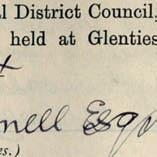 l District Council,
held at Glenties
nell Esqr
es.)